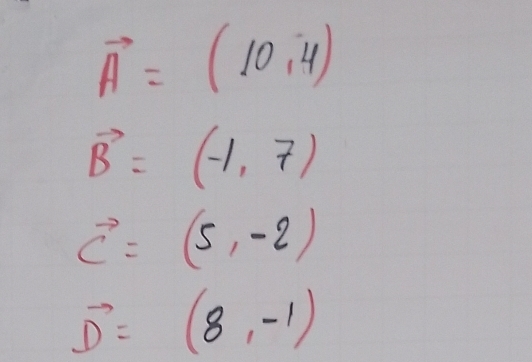 A⃗ = (10, 4)
B⃗ = (-1, 7)
C⃗ = (5, -2)
D⃗ = (8, -1)